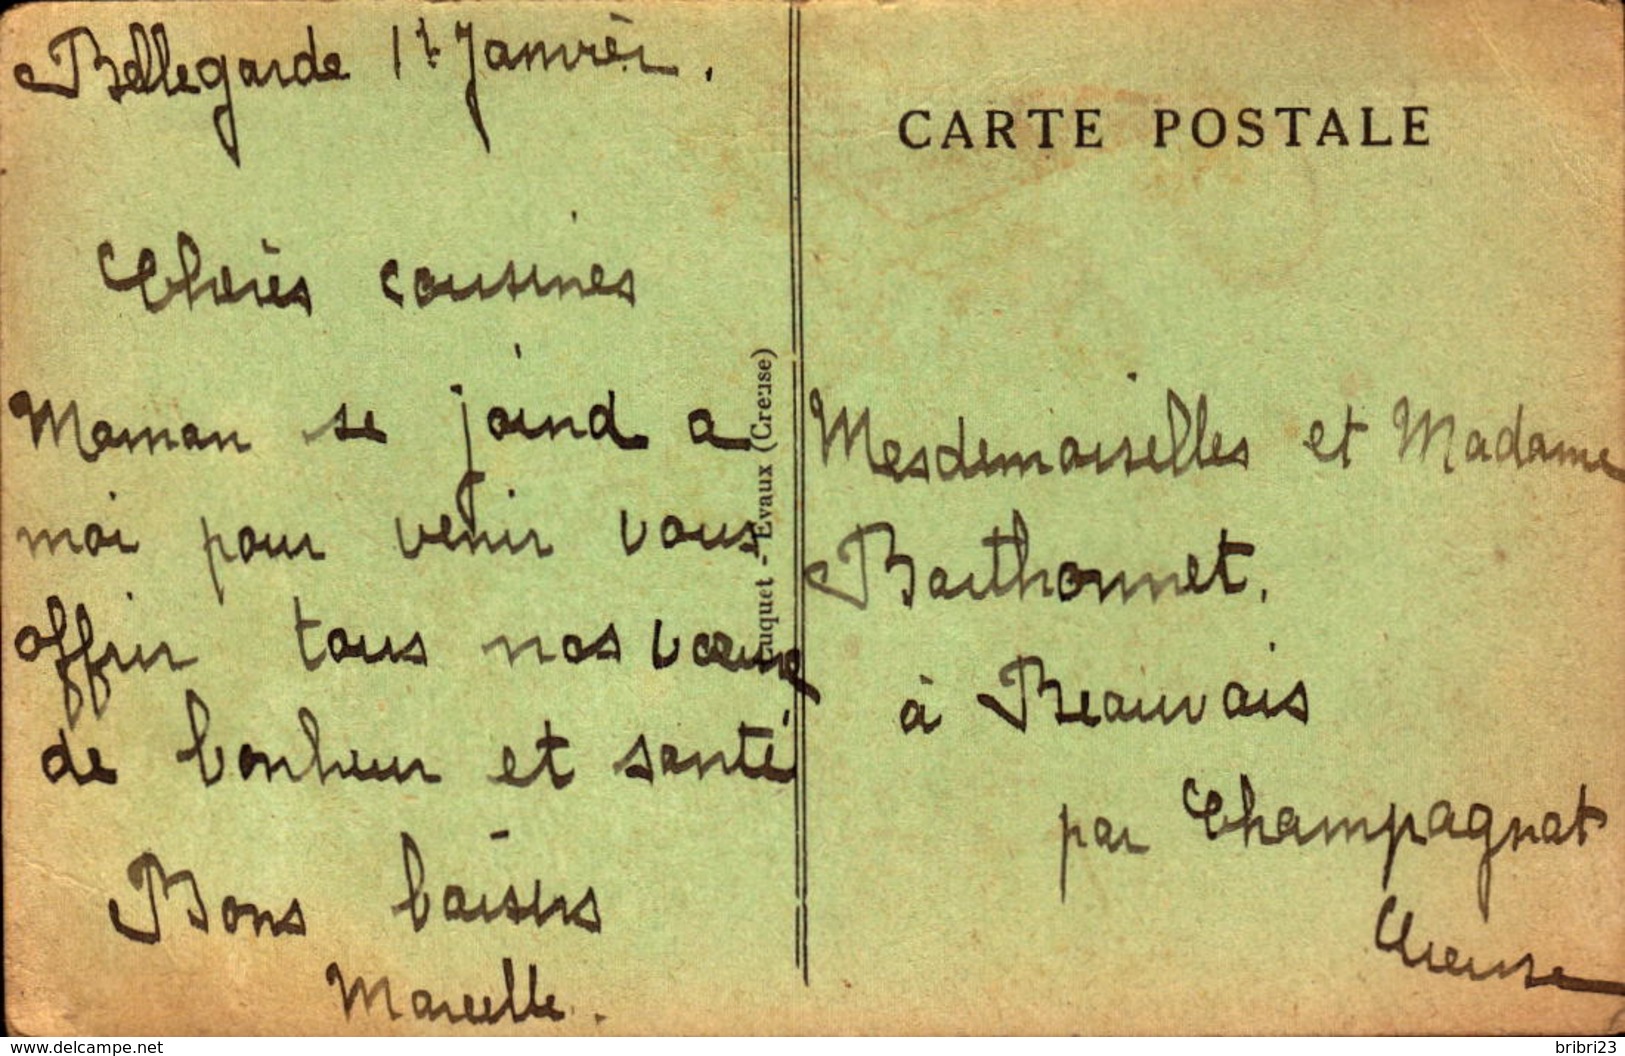 Bellegarde 1r Janvièr.
Chèrès cousines
Maman se joind a
moi pour venir vous
offrir tous nos vœux
de bonheur et santé
Bons baisers
Marcelle.
CARTE POSTALE
Mesdemoiselles et Madame
Barthonnet.
à Beauvais
par Champagnat
Creuse
uquet - Evaux (Creuse)
www.delcampe.net
bribri23